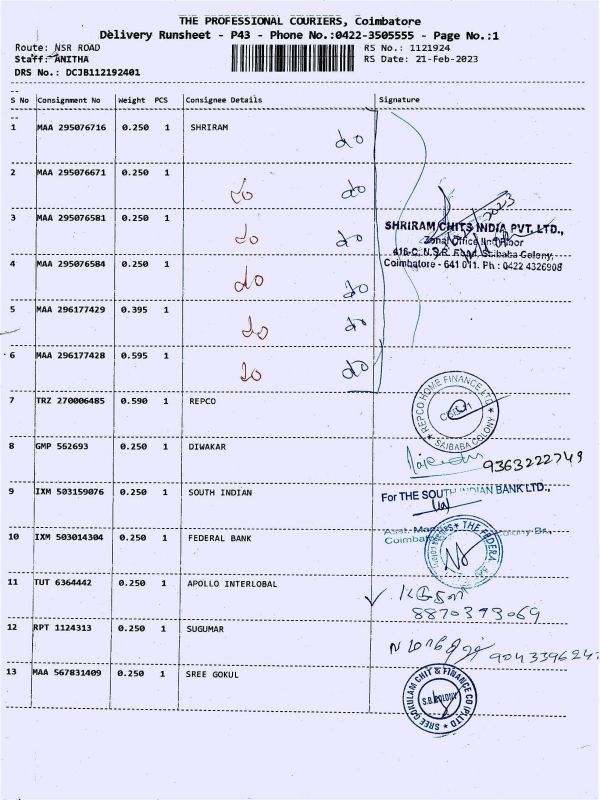 THE PROFESSIONAL COURIERS, Coimbatore
Delivery Runsheet - P43 - Phone No.:0422-3505555 - Page No.:1
Route: NSR ROAD RS No.: 1121924
Staff: ANITHA RS Date: 21-Feb-2023
DRS No.: DCJB112192401
S No Consignment No Weight PCS Consignee Details Signature
1 MAA 295076716 0.250 1 SHRIRAM do
2 MAA 295076671 0.250 1 do do
3 MAA 295076581 0.250 1 do do
SHRIRAM CHITS INDIA PVT. LTD.,
Zonal Office IInd Floor
416-C, N.S.R. Road, Saibaba Colony,
Coimbatore - 641 011. Ph : 0422 4326908
4 MAA 295076584 0.250 1 do do
5 MAA 296177429 0.395 1 do do
6 MAA 296177428 0.595 1 do do
7 TRZ 270006485 0.590 1 REPCO
REPCO HOME FINANCE LTD
SAIBABA COLONY
8 GMP 562693 0.250 1 DIWAKAR 9363222749
9 IXM 503159076 0.250 1 SOUTH INDIAN
For THE SOUTH INDIAN BANK LTD.,
10 IXM 503014304 0.250 1 FEDERAL BANK
11 TUT 6364442 0.250 1 APOLLO INTERLOBAL
8870393069
12 RPT 1124313 0.250 1 SUGUMAR
13 MAA 567831409 0.250 1 SREE GOKUL
SREE GOKULAM CHIT & FINANCE CO (P) LTD
S.B.COLONY